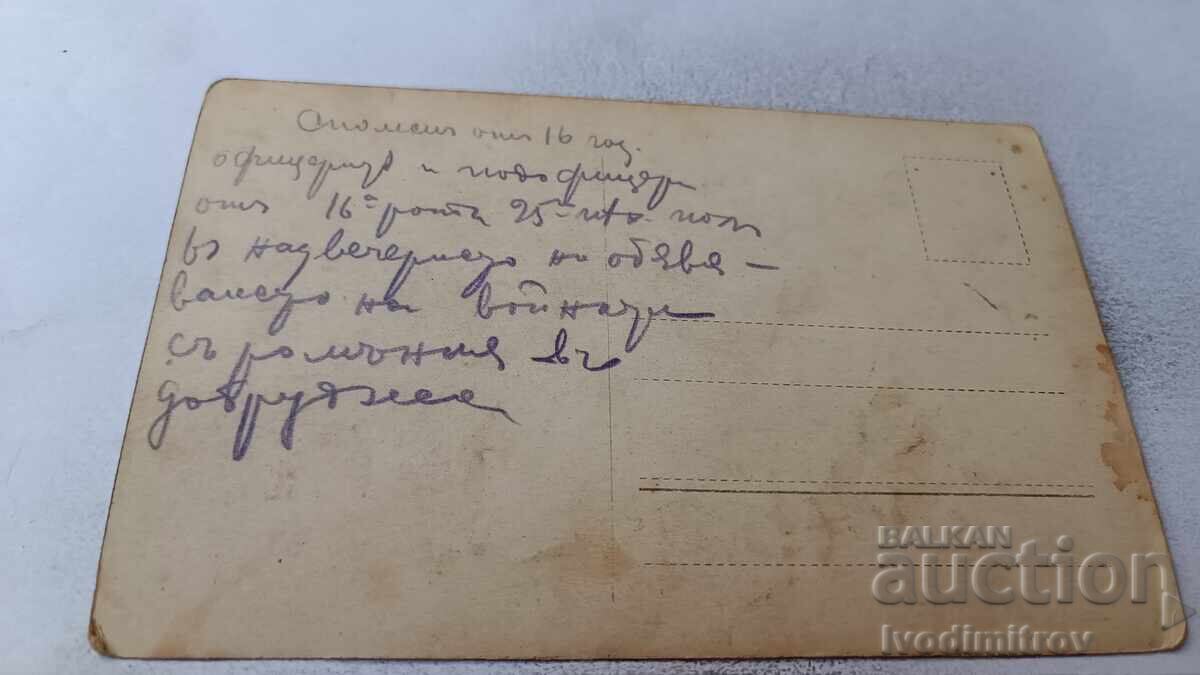 Споменъ отъ 16 год.
офицеритѣ и подофицери
отъ 16а рота 25и пѣх. полкъ
въ надвечерието на обявя-
ването на войната
съ ромъния въ
добруджа
BALKAN
auction
Ivodimitrov